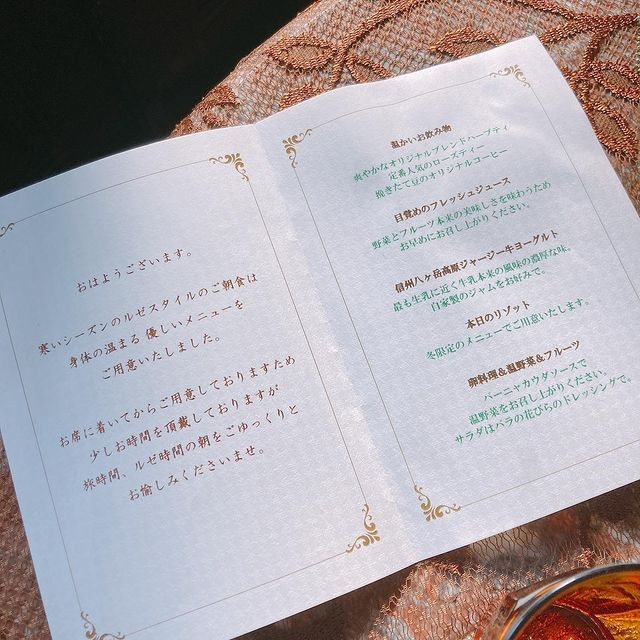 おはようございます。
寒いシーズンのルゼスタイルのご朝食は
身体の温まる 優しいメニューを
ご用意いたしました。
お席に着いてからご用意しておりますため
少しお時間を頂戴しておりますが
旅時間、ルゼ時間の朝をごゆっくりと
お愉しみくださいませ。
温かいお飲み物
爽やかなオリジナルブレンドハーブティ
定番人気のローズティー
挽きたて豆のオリジナルコーヒー
目覚めのフレッシュジュース
野菜とフルーツ本来の美味しさを味わうため
お早めにお召し上がりください。
信州八ヶ岳高原ジャージー牛ヨーグルト
最も生乳に近く牛乳本来の風味の濃厚な味。
自家製のジャムをお好みで。
本日のリゾット
冬限定のメニューでご用意いたします。
卵料理&温野菜&フルーツ
バーニャカウダソースで
温野菜をお召し上がりください。
サラダはバラの花びらのドレッシングで。